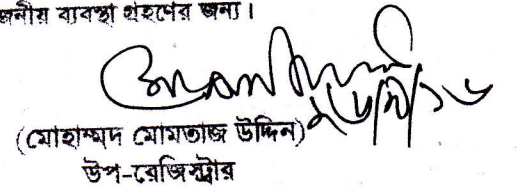 জনীয় ব্যবস্থা গ্রহণের জন্য।
(মোহাম্মদ মোমতাজ উদ্দিন)
উপ-রেজিস্ট্রার